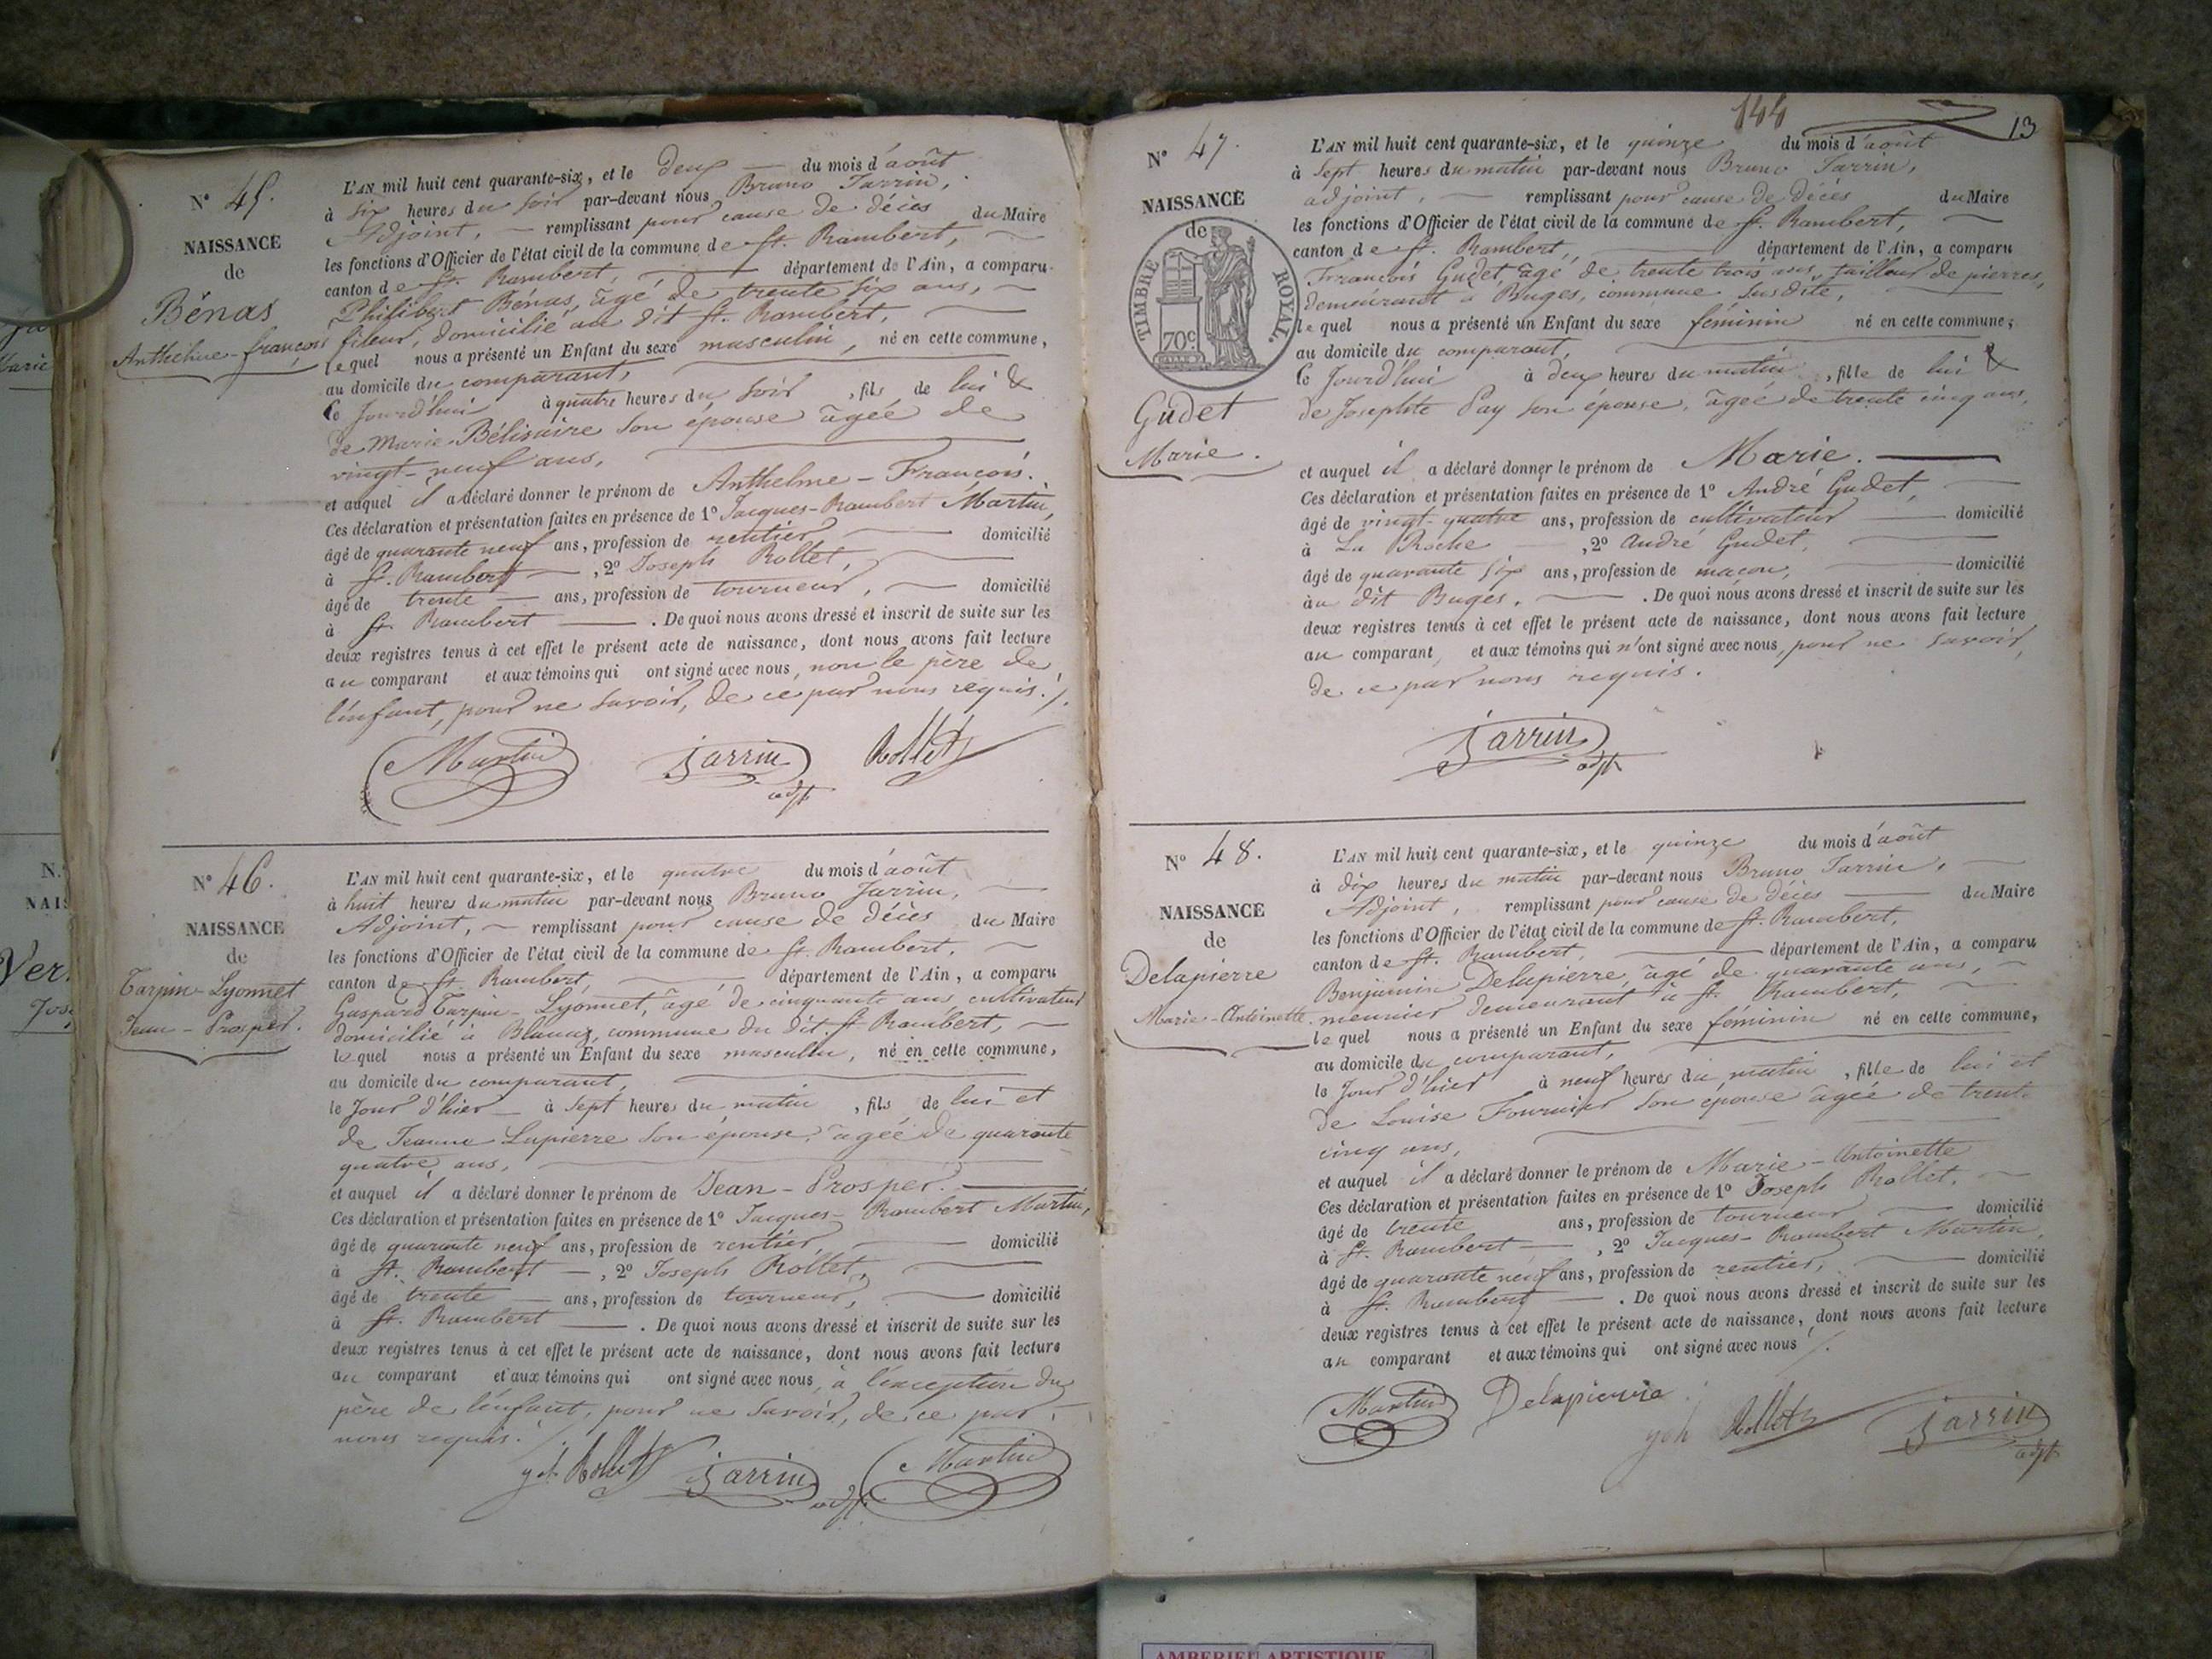 N° 45.
NAISSANCE
de
Bénas
Anthelme-françois
L'AN mil huit cent quarante-six, et le deux du mois d'août
à six heures du soir par-devant nous Bruno Jarrin,
Adjoint, remplissant pour cause de décès du Maire
les fonctions d'Officier de l'état civil de la commune de St. Rambert,
canton de St. Rambert, département de l'Ain, a comparu
Philibert Bénas, âgé de trente six ans,
fileur, domicilié au dit St. Rambert,
lequel nous a présenté un Enfant du sexe masculin, né en cette commune,
au domicile du comparant,
le Jourd'hui à quatre heures du soir, fils de lui &
de Marie Bélisaire son épouse âgée de
vingt-neuf ans,
et auquel il a déclaré donner le prénom de Anthelme-François.
Ces déclaration et présentation faites en présence de 1° Jacques-Rambert Martin,
âgé de quarante neuf ans, profession de rentier, domicilié
à St. Rambert, 2° Joseph Rollet,
âgé de trente ans, profession de tourneur, domicilié
à St. Rambert. De quoi nous avons dressé et inscrit de suite sur les
deux registres tenus à cet effet le présent acte de naissance, dont nous avons fait lecture
au comparant et aux témoins qui ont signé avec nous, non le père de
l'enfant, pour ne savoir, de ce par nous requis./.
Martin Jarrin adjt Rollet
N° 46.
NAISSANCE
de
Tarpin-Lyonnet
Jean-Prosper.
L'AN mil huit cent quarante-six, et le quatre du mois d'août
à huit heures du matin par-devant nous Bruno Jarrin,
Adjoint, remplissant pour cause de décès du Maire
les fonctions d'Officier de l'état civil de la commune de St. Rambert,
canton de St. Rambert, département de l'Ain, a comparu
Gaspard Tarpin-Lyonnet, âgé de cinquante ans cultivateur
domicilié à Blanaz, commune du dit St Rambert,
lequel nous a présenté un Enfant du sexe masculin, né en cette commune,
au domicile du comparant,
le Jour d'hier à sept heures du matin, fils de lui et
de Jeanne Lapierre son épouse, âgée de quarante
quatre ans,
et auquel il a déclaré donner le prénom de Jean-Prosper.
Ces déclaration et présentation faites en présence de 1° Jacques-Rambert Martin,
âgé de quarante neuf ans, profession de rentier, domicilié
à St. Rambert, 2° Joseph Rollet,
âgé de trente ans, profession de tourneur, domicilié
à St. Rambert. De quoi nous avons dressé et inscrit de suite sur les
deux registres tenus à cet effet le présent acte de naissance, dont nous avons fait lecture
au comparant et aux témoins qui ont signé avec nous, à l'exception du
père de l'enfant, pour ne savoir, de ce par
nous requis./.
Rollet Jarrin adjt Martin
144
13
N° 47.
NAISSANCE
de
TIMBRE ROYAL.
70c.
Gudet
Marie.
L'AN mil huit cent quarante-six, et le quinze du mois d'août
à sept heures du matin par-devant nous Bruno Jarrin,
adjoint, remplissant pour cause de décès du Maire
les fonctions d'Officier de l'état civil de la commune de St. Rambert,
canton de St. Rambert, département de l'Ain, a comparu
François Gudet âgé de trente trois ans, tailleur de pierres,
demeurant à Buges, commune susdite,
lequel nous a présenté un Enfant du sexe féminin né en cette commune;
au domicile du comparant,
le Jourd'hui à deux heures du matin, fille de lui &
de Josephte Pay son épouse, âgée de trente cinq ans,
et auquel il a déclaré donner le prénom de Marie.
Ces déclaration et présentation faites en présence de 1° André Gudet,
âgé de vingt-quatre ans, profession de cultivateur domicilié
à La Roche, 2° André Gudet,
âgé de quarante six ans, profession de maçon, domicilié
au dit Buges. De quoi nous avons dressé et inscrit de suite sur les
deux registres tenus à cet effet le présent acte de naissance, dont nous avons fait lecture
au comparant, et aux témoins qui n'ont signé avec nous, pour ne savoir,
de ce par nous requis.
Jarrin adjt
N° 48.
NAISSANCE
de
Delapierre
Marie-Antoinette
L'AN mil huit cent quarante-six, et le quinze du mois d'août
à dix heures du matin par-devant nous Bruno Jarrin,
Adjoint, remplissant pour cause de décès du Maire
les fonctions d'Officier de l'état civil de la commune de St. Rambert,
canton de St. Rambert, département de l'Ain, a comparu
Benjamin Delapierre, âgé de quarante ans,
meunier demeurant à St. Rambert,
lequel nous a présenté un Enfant du sexe féminin né en cette commune,
au domicile du comparant,
le Jour d'hier à neuf heures du matin, fille de lui et
de Louise Fournier son épouse âgée de trente
cinq ans,
et auquel il a déclaré donner le prénom de Marie-Antoinette
Ces déclaration et présentation faites en présence de 1° Joseph Rollet,
âgé de trente ans, profession de tourneur domicilié
à St. Rambert, 2° Jacques-Rambert Martin,
âgé de quarante neuf ans, profession de rentier, domicilié
à St. Rambert. De quoi nous avons dressé et inscrit de suite sur les
deux registres tenus à cet effet le présent acte de naissance, dont nous avons fait lecture
au comparant et aux témoins qui ont signé avec nous./.
Martin Delapierre Rollet Jarrin adjt
AMBERIEU ARTISTIQUE